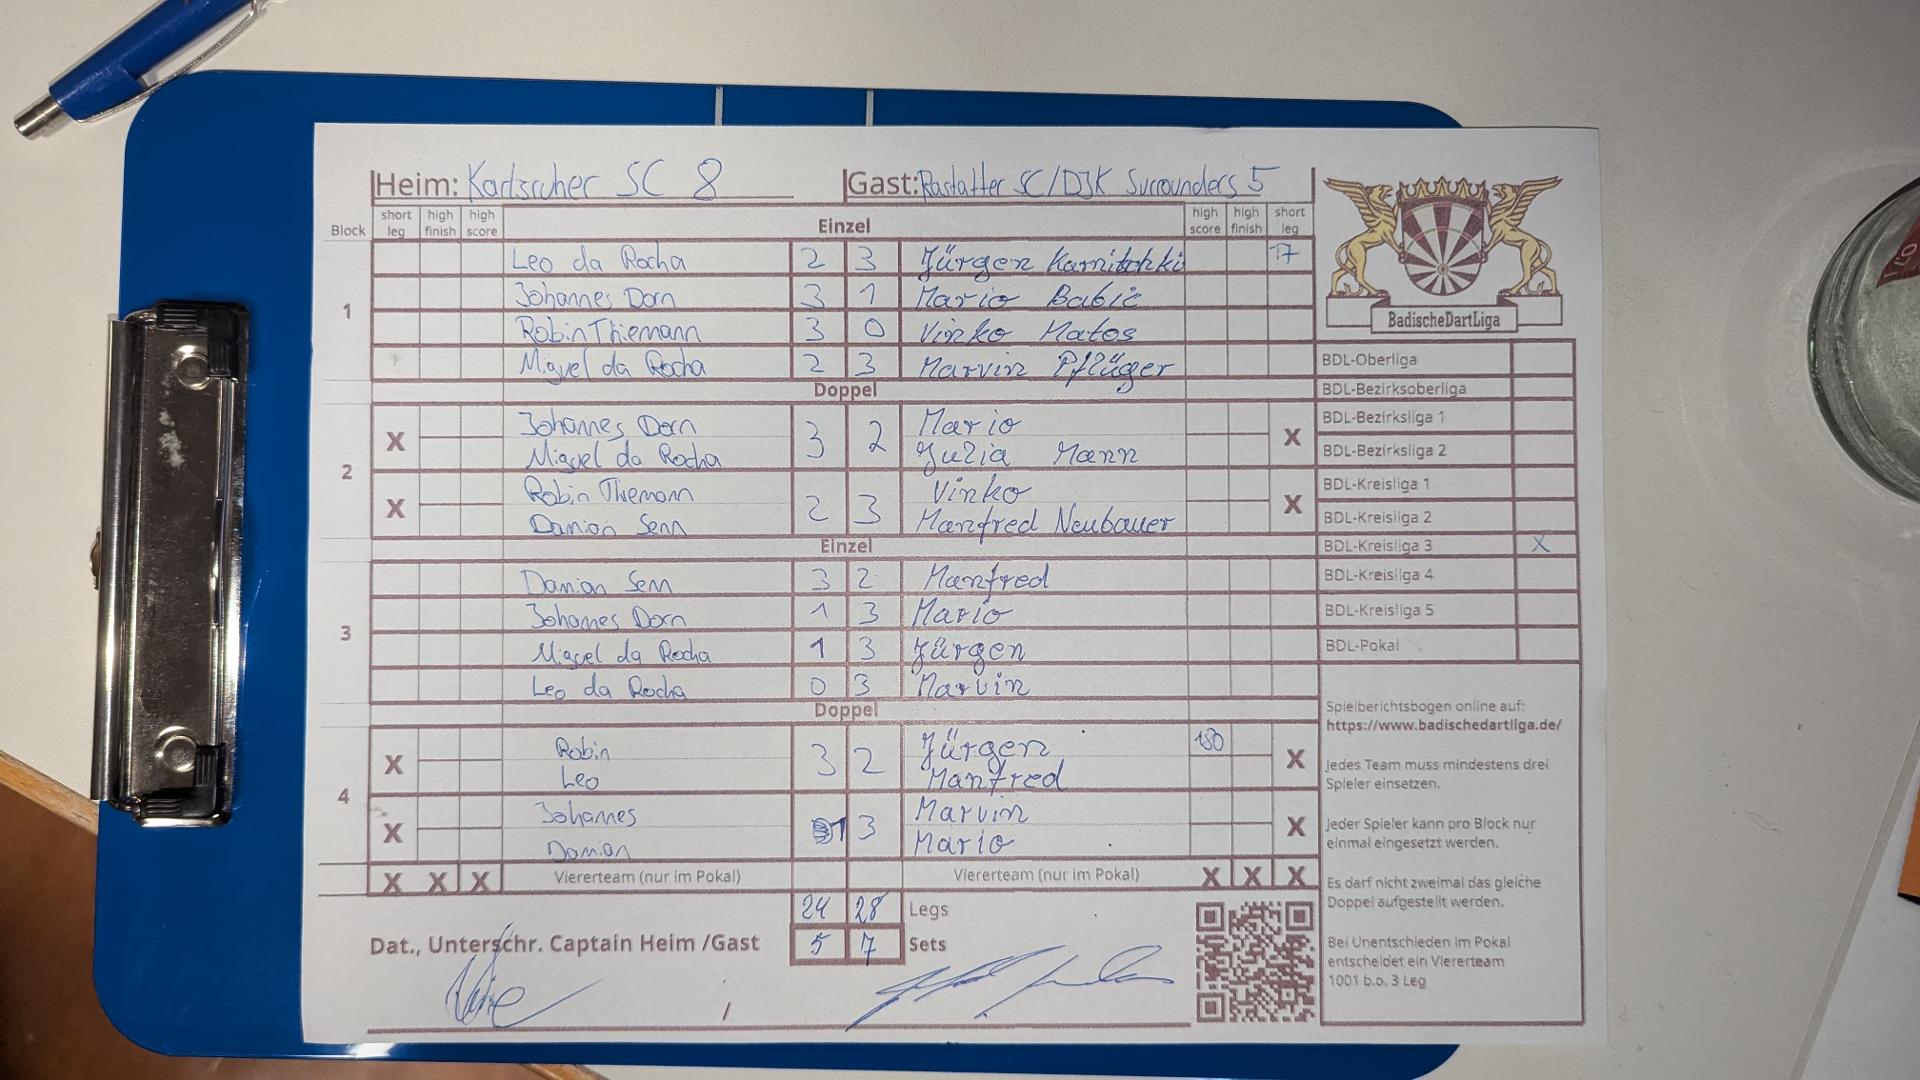 Heim: Karlsruher SC 8 Gast: Rastatter SC/DJK Surrounders 5
Block short leg high finish high score Einzel high score high finish short leg
1
Leo da Rocha 2 3 Jürgen Karnitchki 17
Johannes Dorn 3 1 Mario Babic
Robin Thiemann 3 0 Vinko Matos
Miguel da Rocha 2 3 Marvin Pflüger
Doppel
2
X Johannes Dorn 3 2 Mario X
Miguel da Rocha Julia Mann
X Robin Thiemann 2 3 Vinko X
Damian Senn Manfred Neubauer
Einzel
3
Damian Senn 3 2 Manfred
Johannes Dorn 1 3 Mario
Miguel da Rocha 1 3 Jürgen
Leo da Rocha 0 3 Marvin
Doppel
4
X Robin 3 2 Jürgen 180 X
Leo Manfred
X Johannes 1 3 Marvin X
Damian Mario
X X X Vierteam (nur im Pokal) Vierteam (nur im Pokal) X X X
24 28 Legs
Dat., Unterschr. Captain Heim /Gast 5 7 Sets
/
BadischeDartLiga
BDL-Oberliga
BDL-Bezirksoberliga
BDL-Bezirksliga 1
BDL-Bezirksliga 2
BDL-Kreisliga 1
BDL-Kreisliga 2
BDL-Kreisliga 3 X
BDL-Kreisliga 4
BDL-Kreisliga 5
BDL-Pokal
Spielberichtsbogen online auf:
https://www.badischedartliga.de/
Jedes Team muss mindestens drei
Spieler einsetzen.
Jeder Spieler kann pro Block nur
einmal eingesetzt werden.
Es darf nicht zweimal das gleiche
Doppel aufgestellt werden.
Bei Unentschieden im Pokal
entscheidet ein Viererteam
1001 b.o. 3 Leg